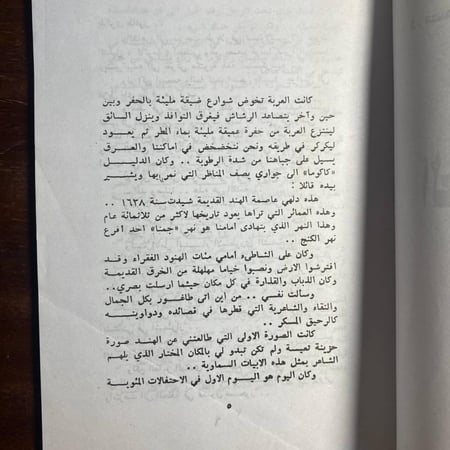 كانت العربة تخوض شوارع ضيقة مليئة بالحفر وبين
حين وآخر يتصاعد الرشاش فيغرق النوافذ وينزل السائق
لينتزع العربة من حفرة عميقة مليئة بماء المطر ثم يعود
ليكركر في طريقه ونحن نتخضخض في اماكننا والعرق
يسيل على جباهنا من شدة الرطوبة .. وكان الدليل
«كاكوما» الى جواري يصف المناظر التي نمر بها ويشير
بيده قائلا :
هذه دلهي عاصمة الهند القديمة شيدت سنة ١٦٣٨ ..
وهذه العمائر التي تراها يعود تاريخها لاكثر من ثلاثمائة عام
وهذا النهر الذي يتهادى امامنا هو نهر «جمنا» احد افرع
نهر الكنج ..
وكان على الشاطىء امامي مئات الهنود الفقراء وقد
افترشوا الارض ونصبوا خياما مهلهلة من الخرق القديمة
وكان الذباب والقذارة في كل مكان حيثما ارسلت بصري ..
وسألت نفسي .. من اين اتى طاغور بكل الجمال
والنقاء والشاعرية التي قطرها في قصائده ودواوينه
كالرحيق المسكر ..
كانت الصورة الاولى التي طالعتني عن الهند صورة
حزينة تعسة ولم تكن تبدو لي بالمكان المختار الذي يلهم
الشاعر بمثل هذه الابيات السماوية ..
وكان اليوم هو اليوم الاول في الاحتفالات المئوية
٥